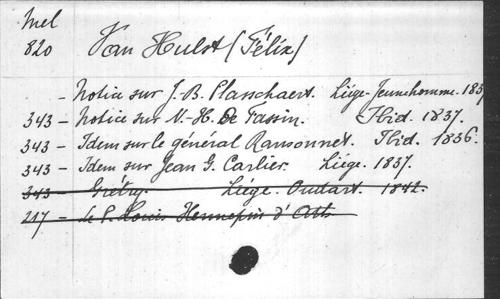 Mel
820 Van Hulst (Félix)
- Notice sur J.-B. Plasschaert. Liége-Jeunehomme. 183
343 - Notice sur N.-H. de Fassin. Ibid. 1837.
343 - Idem sur le général Ransonnet. Ibid. 1836.
343 - Idem sur Jean G. Carlier. Liége. 1837.
343 - Grétry. Liége. Oudart. 1842.
217 - Le P. Louis Hennepin d'Ath